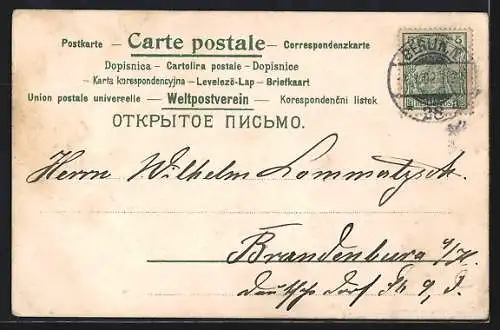 Postkarte - Carte postale - Correspondenzkarte
Dopisnica - Cartolira postale - Dopisnice
- Karta korespondencyjna - Levelező-Lap - Briefkaart
Union postale universelle - Weltpostverein - Korespondenční listek
ОТКРЫТОЕ ПИСЬМО.
5
BERLIN
28
Herrn Wilhelm Lommatzsch.
Brandenburg a/H.
Deutsche Dorf